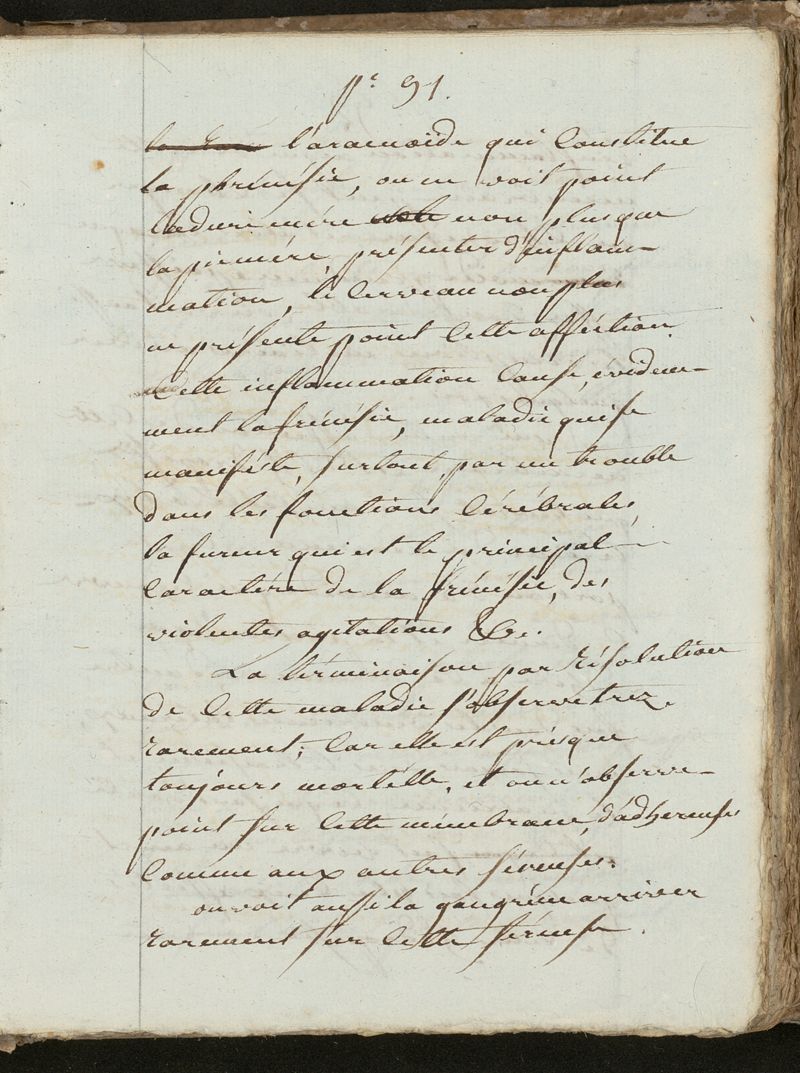 pe 91.
l'aracnoide qui Constitue
la phrénésie, on ne voit point
ladure mère non plus que
la piemère présenter d'inflam-
mation, le Cerveau non plus
ne présente point Cette affection
Cette inflammation Cause, évidem-
ment lafrénésie, maladie quise
manifeste, surtout, par un trouble
dans les fonctions Cérébrales,
la fureur qui est le principal
Caractère de la frénésie, des
violentes agitations &c.
La términaison par résolution
de Cette maladie s'observe trez
rarement; Car elle est présque
toujours mortelle, et on n'observe
point sur Cette membrane, d'adherenses
Comme aux autres séreuses.
on voit aussi la gangrène arriver
rarement sur Cette séreuse.